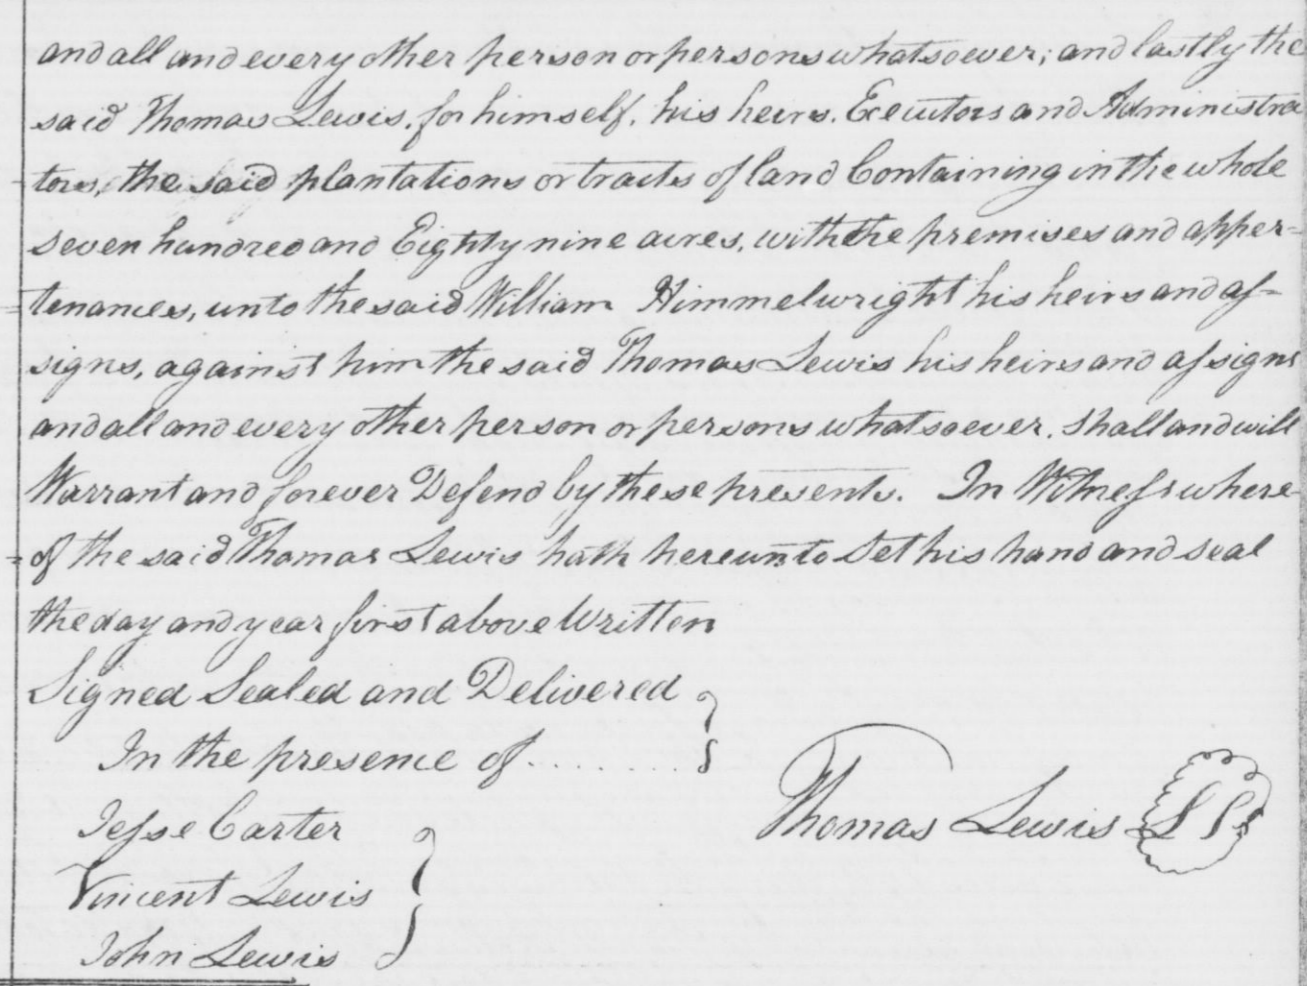 and all and every other person or persons whatsoever; and lastly the
said Thomas Lewis, for himself, his heirs, Executors and Administra
tors, the said plantations or tracts of land Containing in the whole
seven hundred and Eighty nine acres, with the premises and apper-
tenances, unto the said William Himmelwright his heirs and as-
signs, against him the said Thomas Lewis his heirs and assigns
and all and every other person or persons whatsoever, shall and will
Warrant and forever Defend by these presents. In Witness where-
of the said Thomas Lewis hath hereunto Set his hand and seal
the day and year first above Written
Signed Sealed and Delivered
In the presence of........
Thomas Lewis LS
Jesse Carter
Vincent Lewis
John Lewis